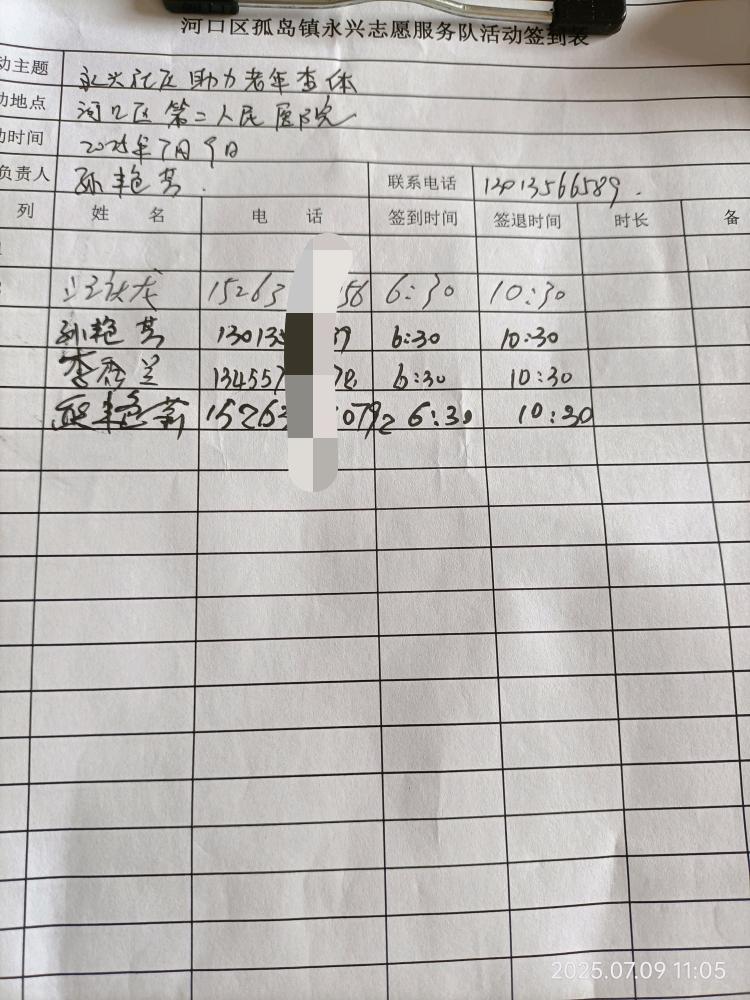 河口区孤岛镇永兴志愿服务队活动签到表
动主题 永兴社区助力老年查体
动地点 河口区第二人民医院
动时间 2025年7月9日
负责人 孙艳芳. 联系电话 13013566589.
列 姓 名 电 话 签到时间 签退时间 时长 备
15263 56 6:30 10:30
孙艳芳 130135 6:30 10:30
李秀兰 134557 6:30 10:30
15263 0792 6:30 10:30
2025.07.09 11:05